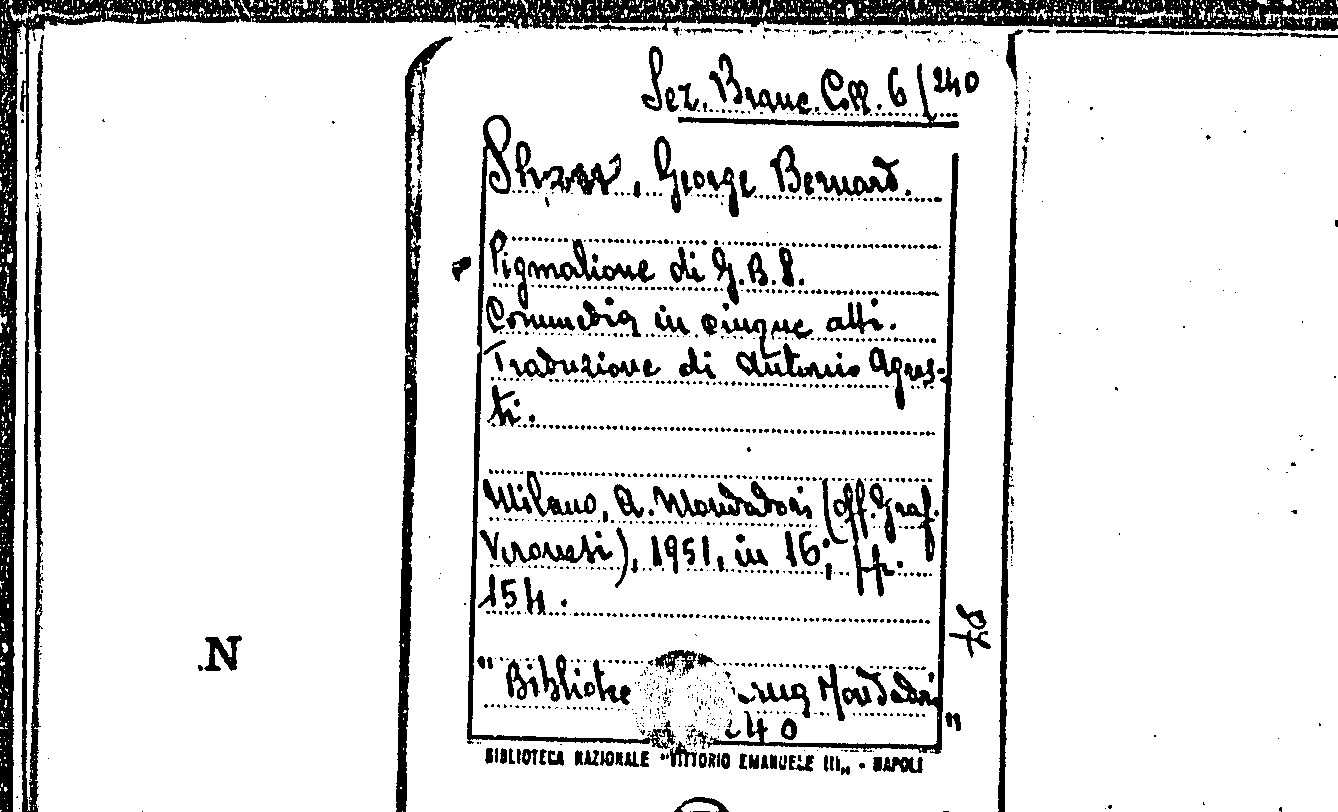 Sez. Branc. Coll. 6/240
Shaw, George Bernard.
Pigmalione di G.B.S.
Commedia in cinque atti.
Traduzione di Antonio Agres-
ti.
Milano, A. Mondadori (Off. Graf.
Veronesi), 1951, in 16; pp.
154.
"Bibliote Mondadori
40"
BIBLIOTECA NAZIONALE "VITTORIO EMANUELE III„ - NAPOLI
.N